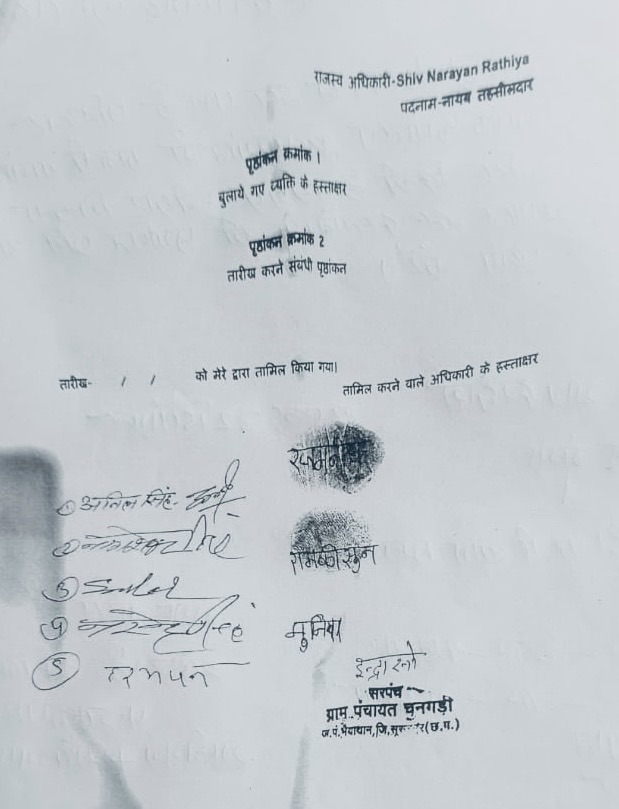 राजस्व अधिकारी-Shiv Narayan Rathiya
पदनाम-नायब तहसीलदार
पृष्ठांकन क्रमांक 1
बुलाये गए व्यक्ति के हस्ताक्षर
पृष्ठांकन क्रमांक 2
तारीख करने संबंधी पृष्ठांकन
तारीख- / / को मेरे द्वारा तामिल किया गया।
तामिल करने वाले अधिकारी के हस्ताक्षर
① अनिल सिंह-
②
③
④
⑤
मुनिया
इन्द्रा
सरपंच
ग्राम पंचायत चुनगड़ी
ज.पं.भैयाथान,जि. (छ.ग.)